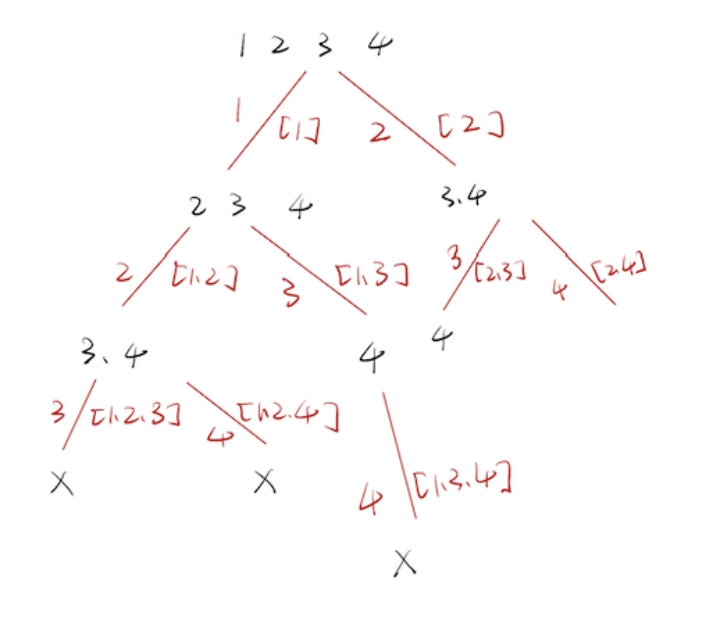 1 2 3 4
1 [1] 2 [2]
2 3 4 3.4
2 [1.2] 3 [1.3] 3 [2.3] 4 [2.4]
3、4 4 4
3 [1.2.3] 4 [1.2.4] 4 [1.3.4]
X X
X